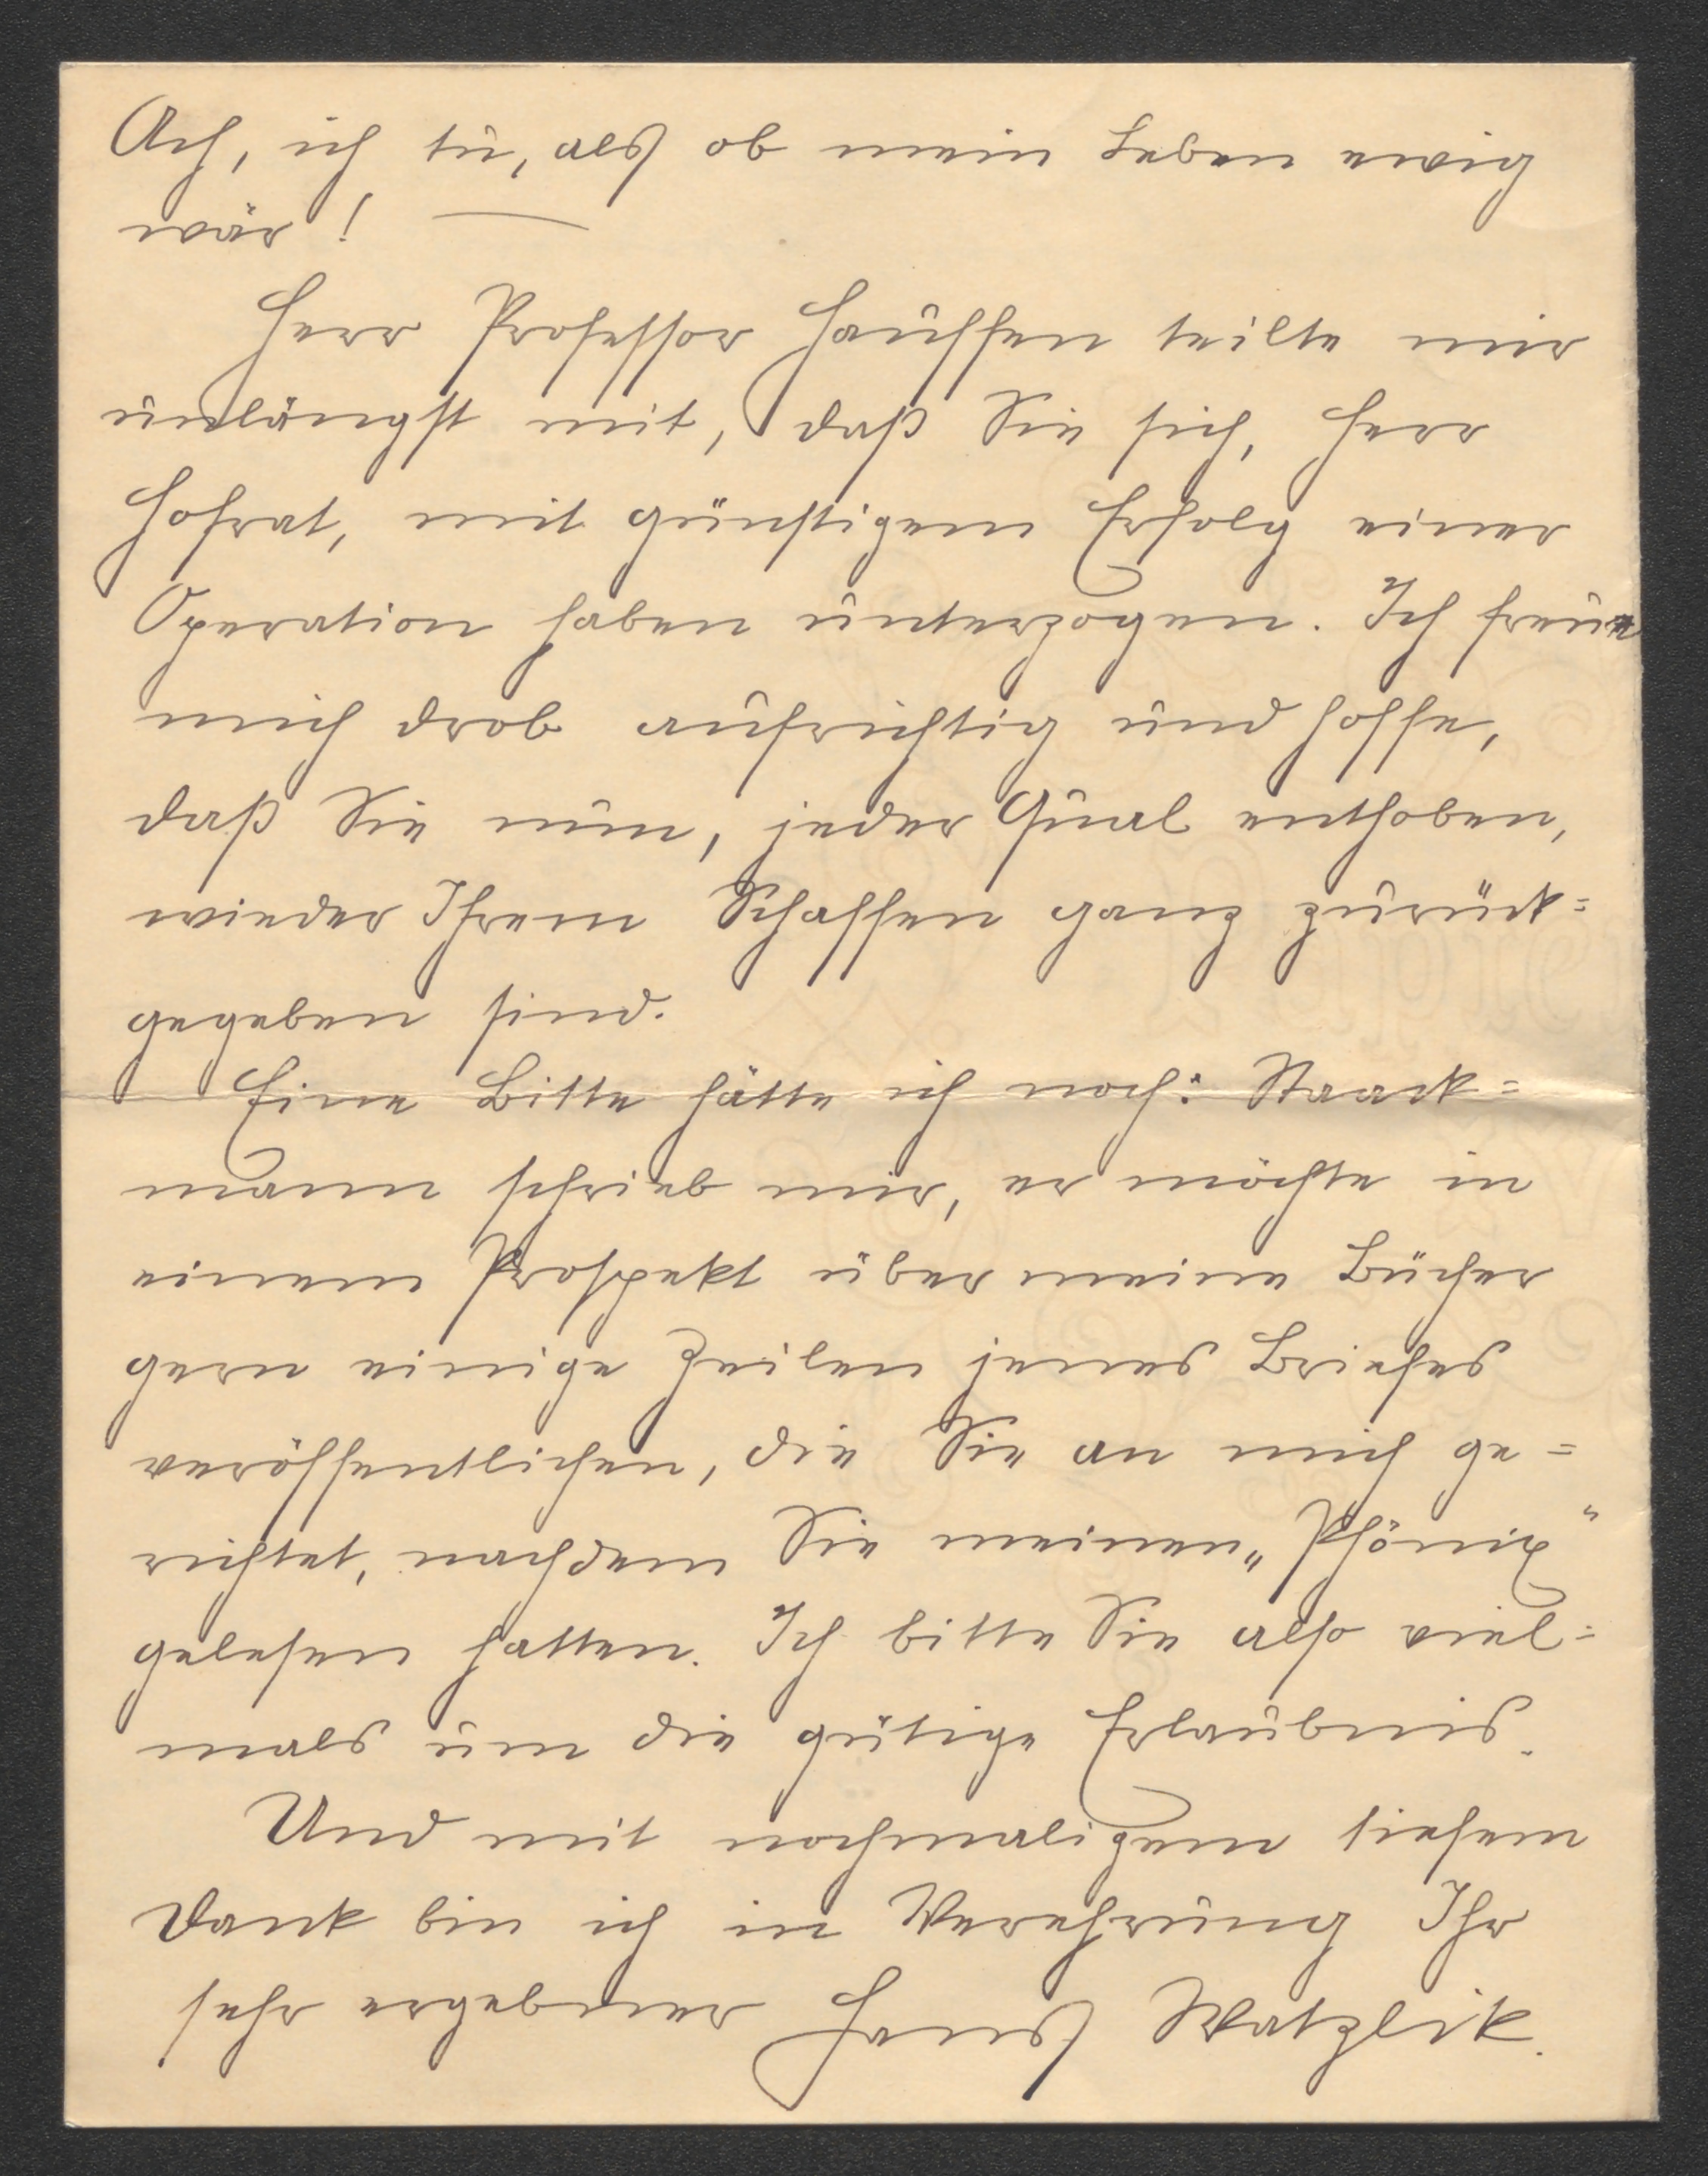 Ach, ich tu, als ob mein Leben ewig
wär! —
Herr Professor Hauffen teilte mir
unlängst mit, daß Sie sich, Herr
Hofrat, mit günstigem Erfolg einer
Operation haben unterzogen. Ich freue
mich drob aufrichtig und hoffe,
daß Sie nun, jeder Qual enthoben,
wieder Ihrem Schaffen ganz zurück=
gegeben sind.
Eine Bitte hätte ich noch: Staack=
mann schrieb mir, er möchte in
einem Prospekt über meine Bücher
gern einige Zeilen jenes Briefes
veröffentlichen, die Sie an mich ge=
richtet, nachdem Sie meinen „Phönix“
gelesen hatten. Ich bitte Sie also viel=
mals um die gütige Erlaubnis.
Und mit nochmaligem tiefem
Dank bin ich in Verehrung Ihr
sehr ergebener Hans Watzlik.